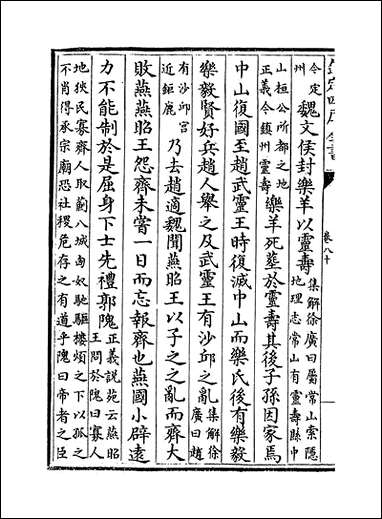 欽定四庫全書
卷八十
今定州魏文侯封樂羊以靈壽集解徐廣曰屬常山索隱地理志常山有靈壽縣中
山桓公所都之地正義今鎮州靈壽樂羊死葬於靈壽其後子孫因家焉
中山復國至趙武靈王時復滅中山而樂氏後有樂毅
樂毅賢好兵趙人舉之及武靈王有沙丘之亂集解徐廣曰趙
有沙邱宮近鉅鹿乃去趙適魏聞燕昭王以子之之亂而齊大
敗燕燕昭王怨齊未嘗一日而忘報齊也燕國小辟遠
力不能制於是屈身下士先禮郭隗正義說苑云燕昭王問於隗曰寡人
地狹民寡齊人取薊八城匈奴馳驅樓煩之下以孤之
不肖得承宗廟恐社稷危存之有道乎隗曰帝者之臣